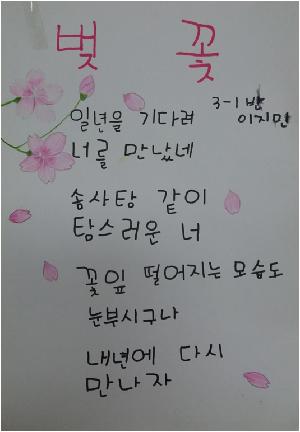 벚 꽃
3-1 반
이지민
일년을 기다려
너를 만났네
솜사탕 같이
탐스러운 너
꽃잎 떨어지는 모습도
눈부시구나
내년에 다시
만나자